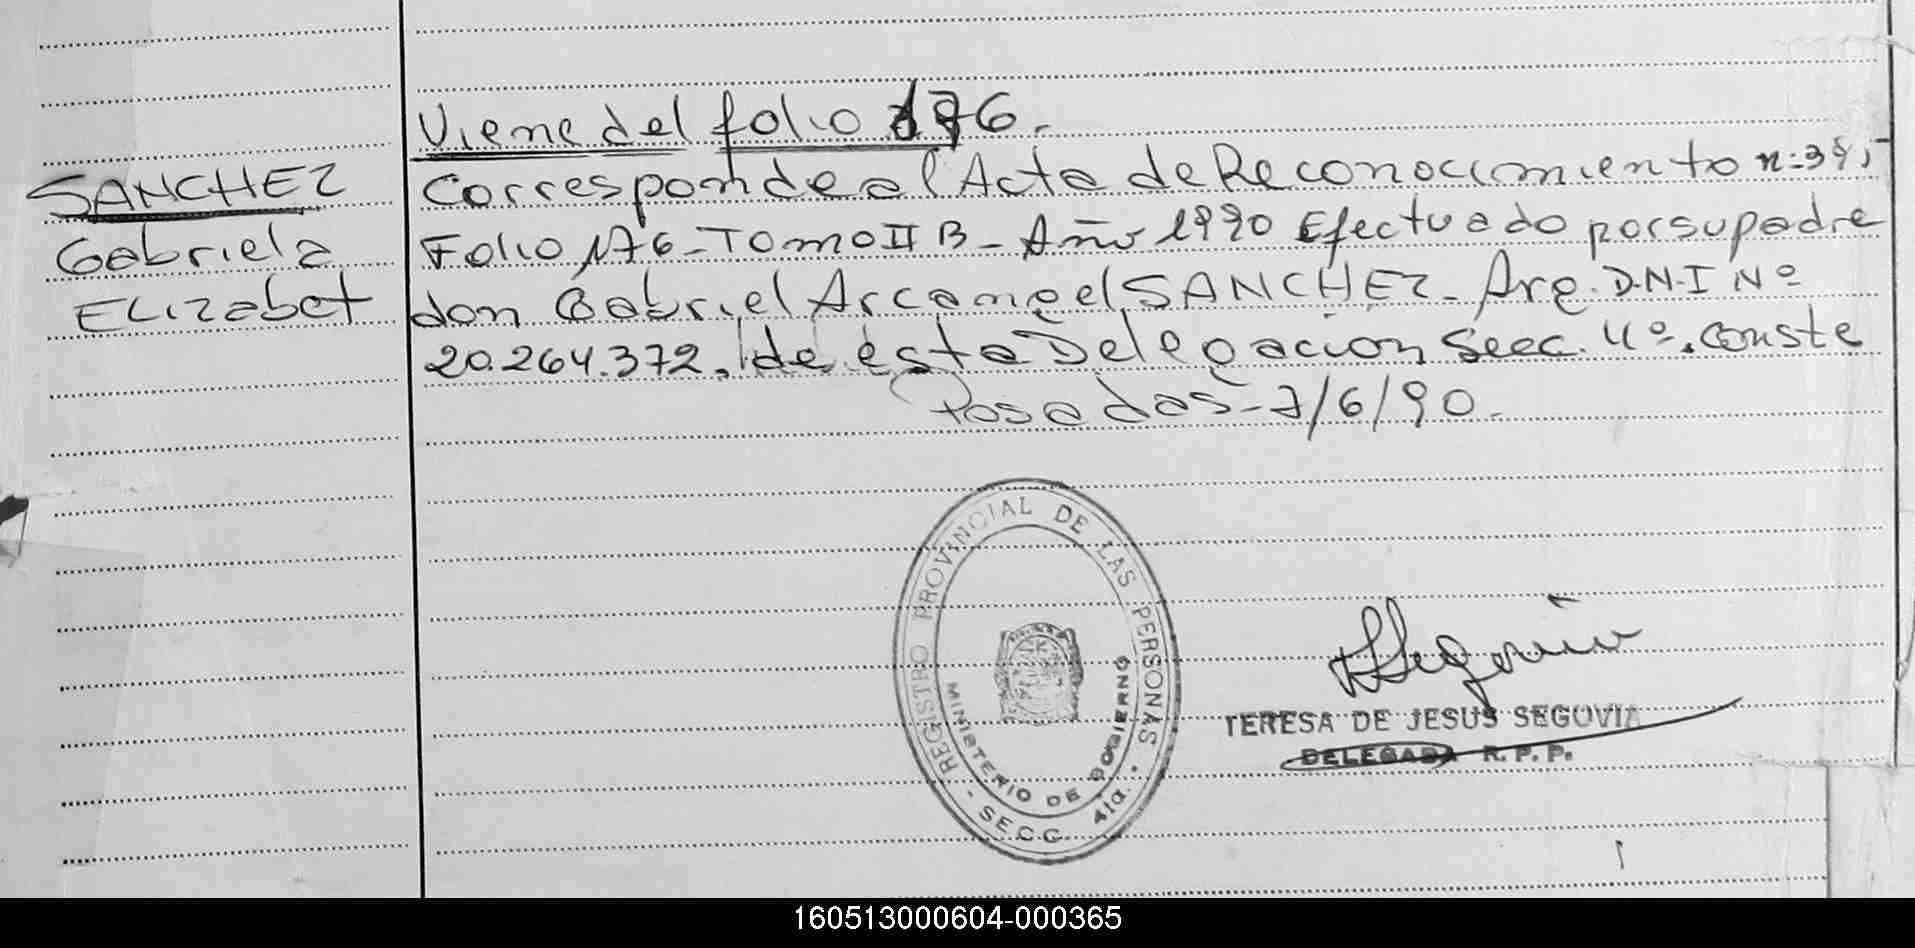 Viene del folio 176.
SANCHEZ
Gabriela
ELizabet
Corresponde al Acta de Reconocimiento
Folio 176_Tomo II B_ Año 1990 Efectuado por su padre
don Gabriel Arcangel SANCHEZ_ Arg. D.N.I Nº
20.264.372, de ésta Delegación Secc. 4º. conste
Posadas_7/6/90.
REGISTRO PROVINCIAL DE LAS PERSONAS.
MINISTERIO DE GOBIERNO
- SECC. 4ta.
TSegovia
TERESA DE JESUS SEGOVIA
DELEGADA R.P.P.
160513000604-000365